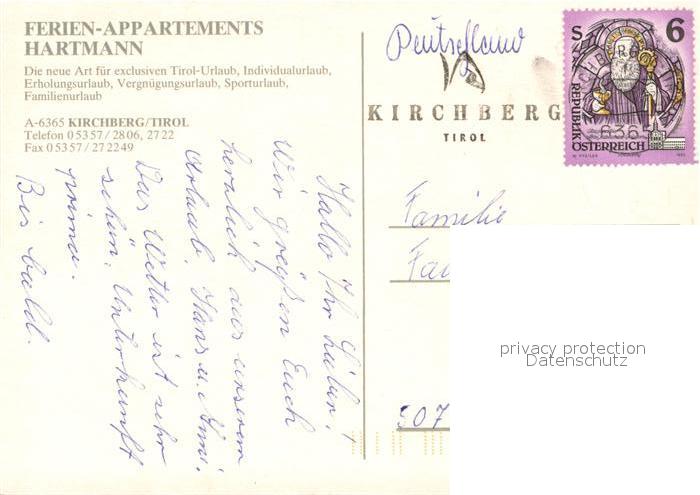 FERIEN-APPARTEMENTS
HARTMANN
Die neue Art für exclusiven Tirol-Urlaub, Individualurlaub,
Erholungsurlaub, Vergnügungsurlaub, Sporturlaub,
Familienurlaub
A-6365 KIRCHBERG/TIROL
Telefon 0 53 57 / 28 06, 27 22
Fax 0 53 57 / 27 22 49
Hallo Ihr Lieben!
Wir grüßen Euch
herzlich aus unserem
Urlaub. Hans u. Anni.
Das Wetter ist sehr
schön. Unterkunft
prima.
Bis bald.
Deutschland
KIRCHBERG
TIROL
S 6
REPUBLIK
ÖSTERREICH
6365
Familie
507
privacy protection
Datenschutz